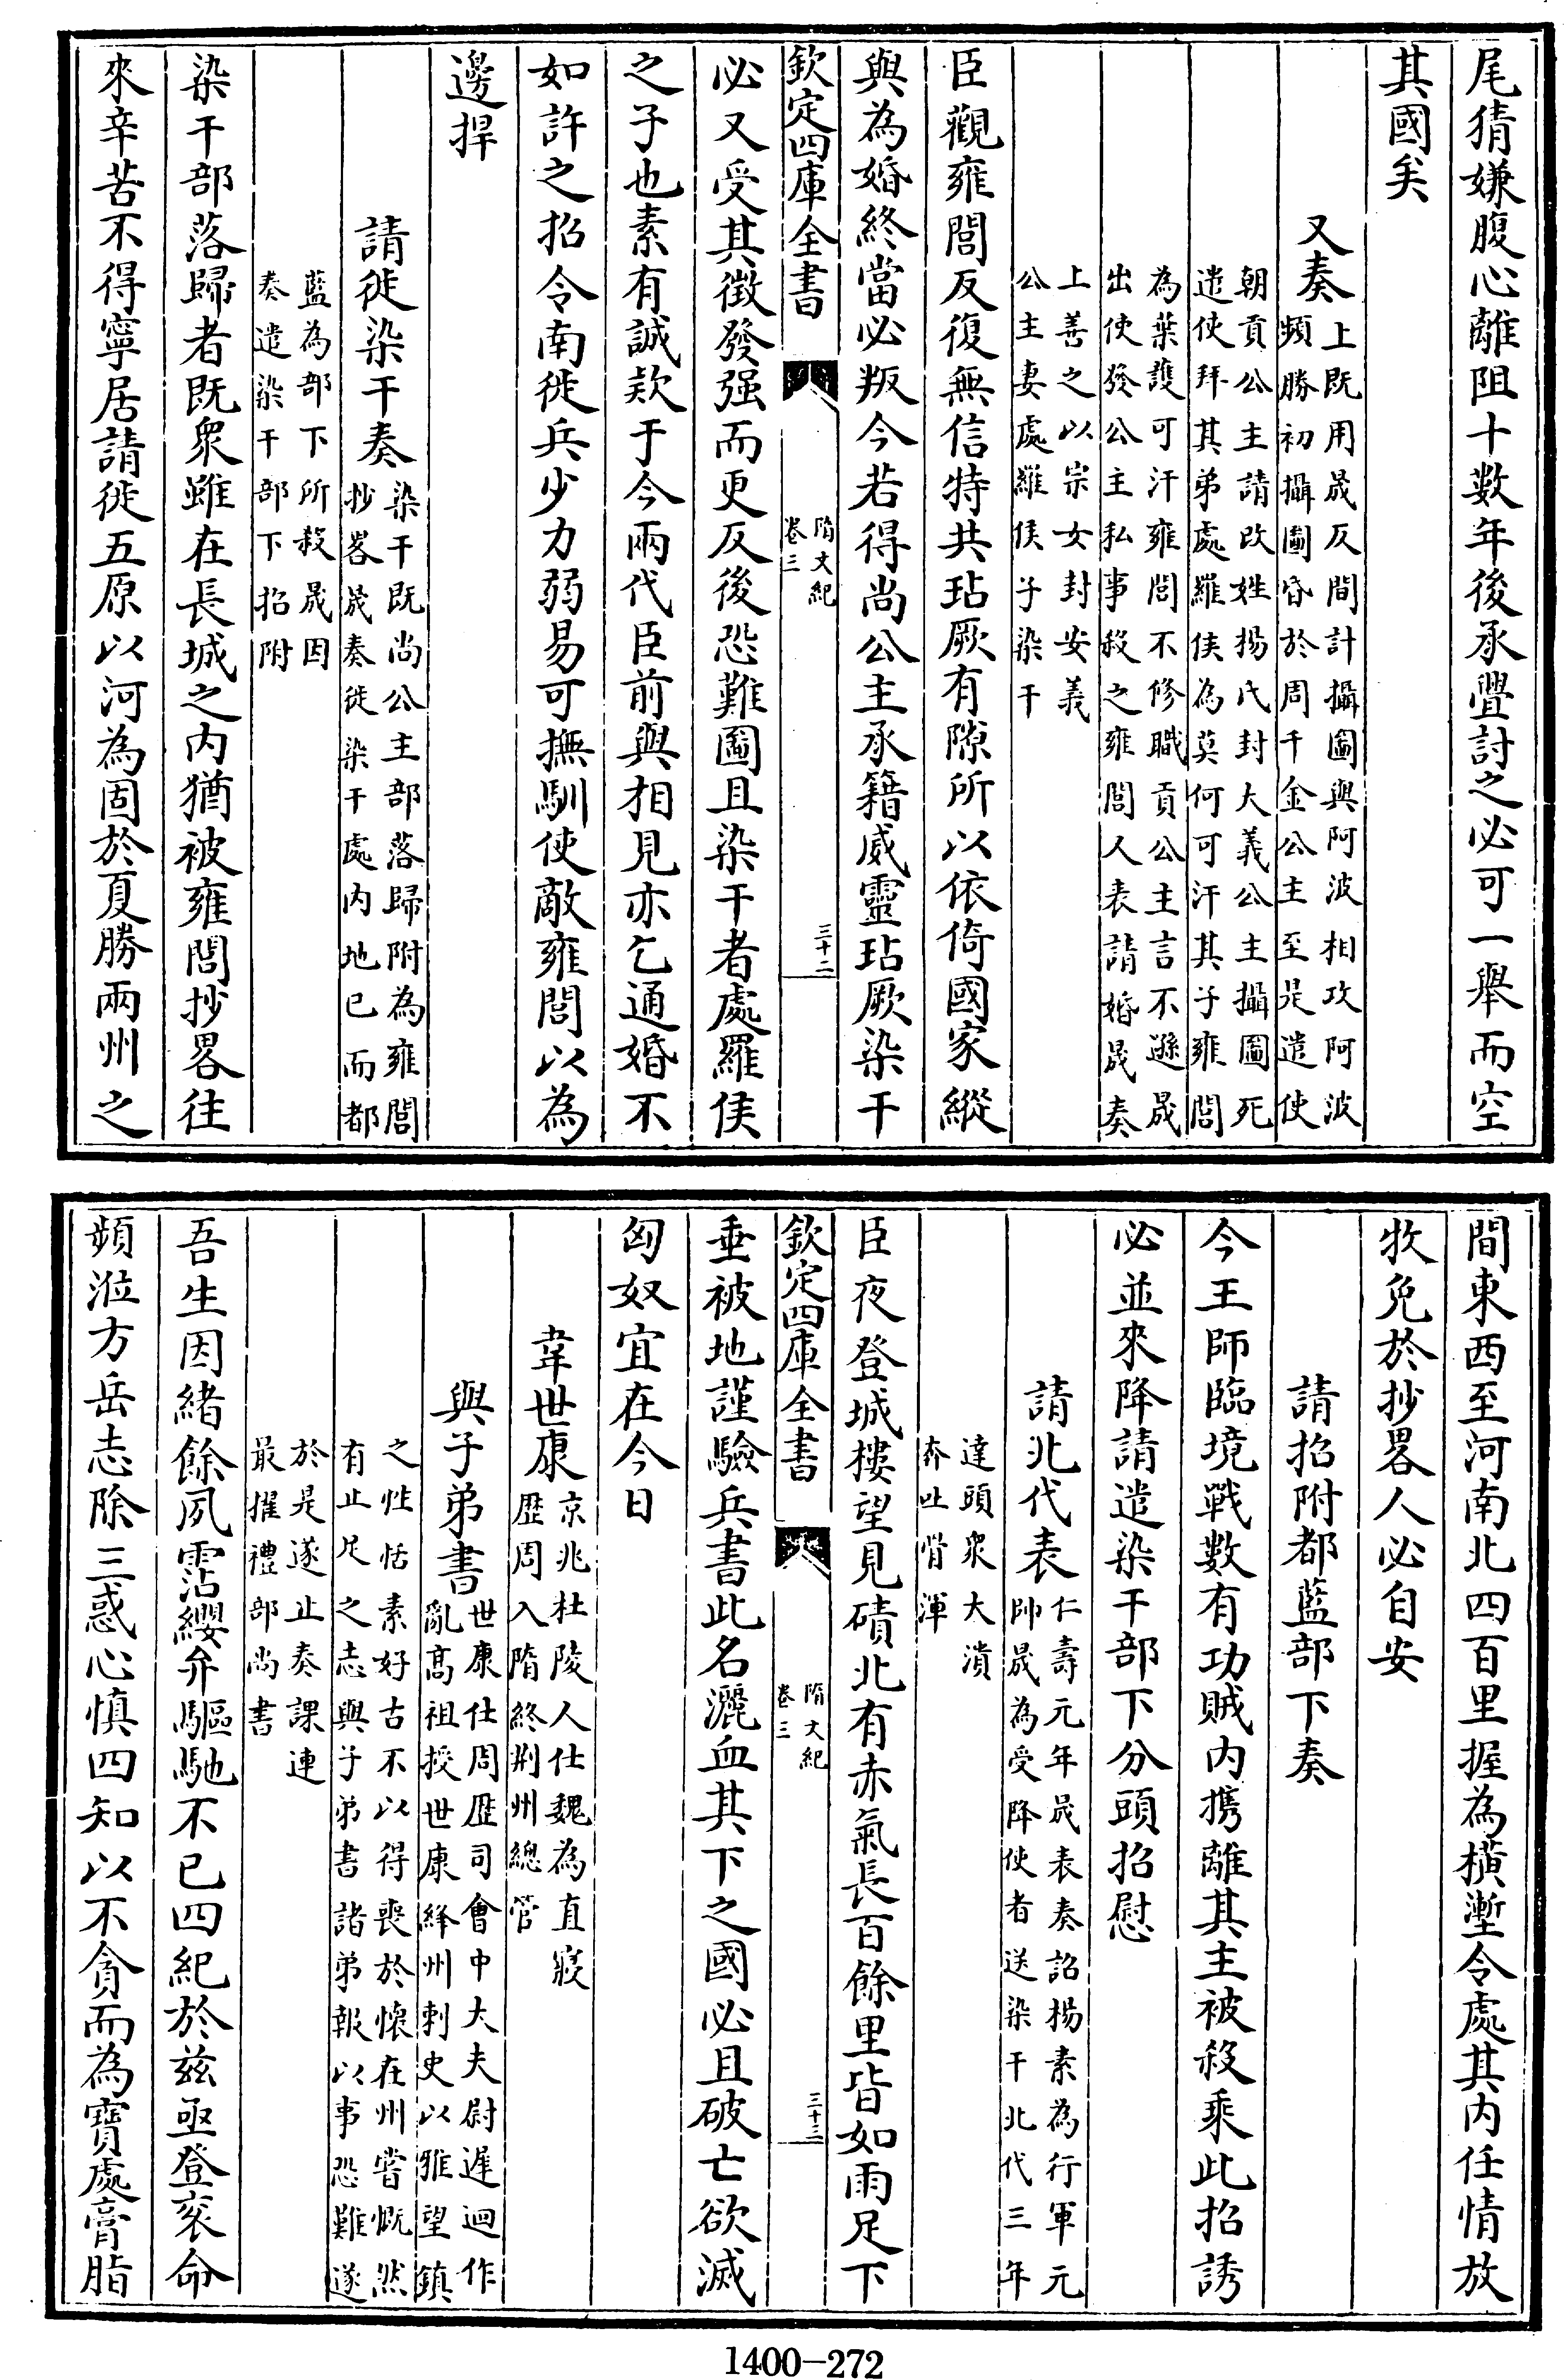 尾猜嫌腹心離阻十數年後承舋討之必可一舉而空
其國矣
又奏
上既用晟反間計攝圖與阿波相攻阿波
頻勝初攝圖㫬於周千金公主至是遣使
朝貢公主請改姓揚氏封大義公主攝圖死
遣使拜其弟處羅侯為莫何可汗其子雍閭
為葉護可汗雍閭不修職貢公主言不遜晟
出使發公主私事殺之雍閭人表請婚晟奏
上善之以宗女封安義
公主妻處羅侯子染干
臣觀雍閭反復無信特共玷厥有隙所以依倚國家縱
與為婚終當必叛今若得尚公主承籍威靈玷厥染干
欽定四庫全書
隋文紀
卷三
三十二
必又受其徵發强而更反後恐難圖且染干者處羅侯
之子也素有誠款于今兩代臣前與相見亦乞通婚不
如許之招令南徙兵少力弱易可撫馴使敵雍閭以為
邊捍
請徙染干奏
染干既尚公主部落歸附為雍閭
抄畧晟奏徙染干處内地已而都
藍為部下所殺晟因
奏遣染干部下招附
染干部落歸者既衆雖在長城之内猶被雍閭抄畧往
來辛苦不得寧居請徙五原以河為固於夏勝兩州之
間東西至河南北四百里掘為橫塹令處其内任情放
牧免於抄畧人必自安
請招附都藍部下奏
今王師臨境戰數有功賊内攜離其主被殺乘此招誘
必並來降請遣染干部下分頭招慰
請北伐表
仁壽元年晟表奏詔楊素為行軍元
帥晟為受降使者送染干北伐三年
達頭衆大潰
奔吐谷渾
臣夜登城樓望見磧北有赤氣長百餘里皆如雨足下
欽定四庫全書
隋文紀
卷三
三十三
垂被地謹驗兵書此名灑血其下之國必且破亡欲滅
匈奴宜在今日
韋世康
京兆杜陵人仕魏為直寢
歴周入隋終荆州總管
與子弟書
世康仕周歴司會中大夫尉遲迴作
亂髙祖授世康絳州刺史以雅望鎮
之性恬素好古不以得喪於懐在州嘗慨然
有止足之志與子弟書諸弟報以事恐難遂
於是遂止奏課連
最擢禮部尚書
吾生因緒餘夙霑纓弁驅馳不已四紀於兹亟登衮命
頻涖方岳志除三惑心慎四知以不貪而為寶處膏脂
1400-272